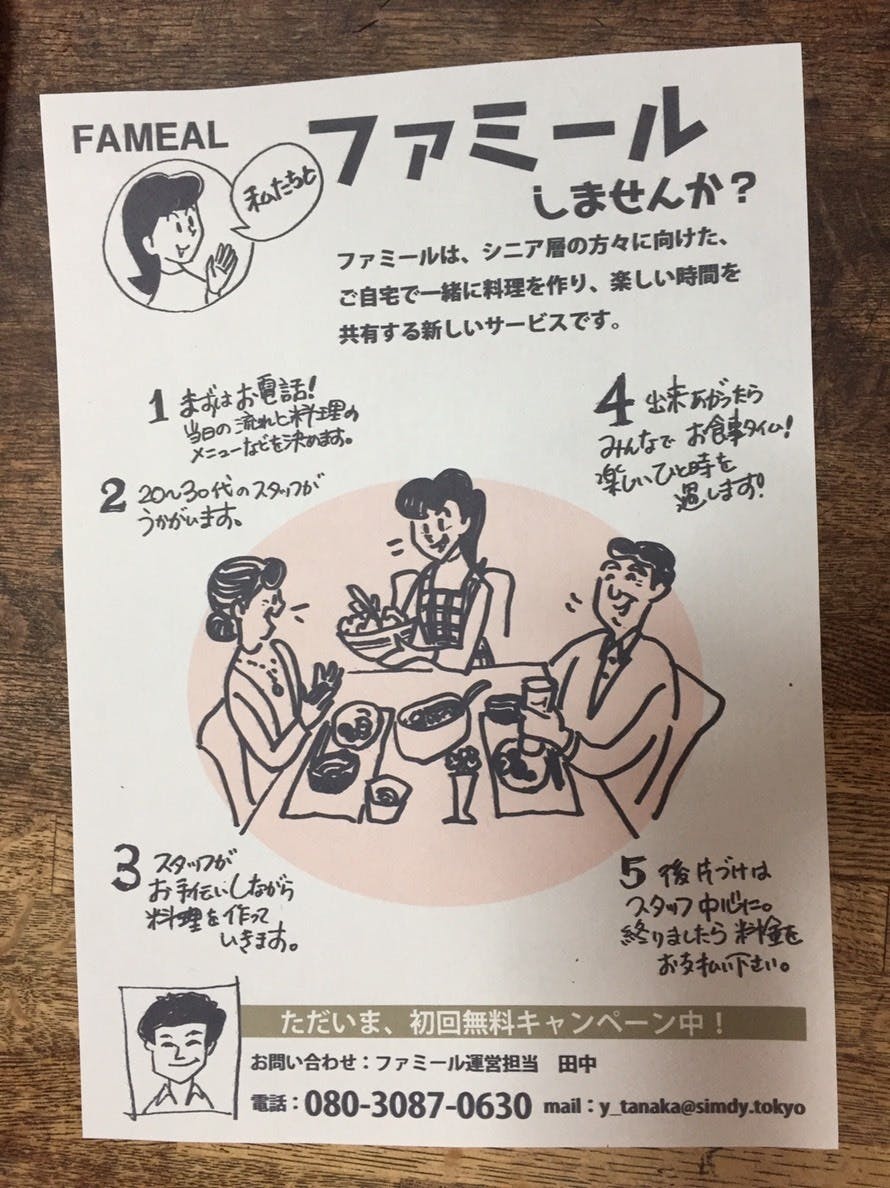 FAMEAL
私たちと
ファミール
しませんか？
ファミールは、シニア層の方々に向けた、
ご自宅で一緒に料理を作り、楽しい時間を
共有する新しいサービスです。
1 まずはお電話！
当日の流れと料理の
メニューなどを決めます。
2 20〜30代のスタッフが
うかがいます。
3 スタッフが
お手伝いしながら
料理を作って
いきます。
4 出来あがったら
みんなでお食事タイム！
楽しいひと時を
過します！
5 後片づけは
スタッフ中心に。
終りましたら料金を
お支払い下さい。
ただいま、初回無料キャンペーン中！
お問い合わせ：ファミール運営担当　田中
電話：080-3087-0630 mail：y_tanaka@simdy.tokyo